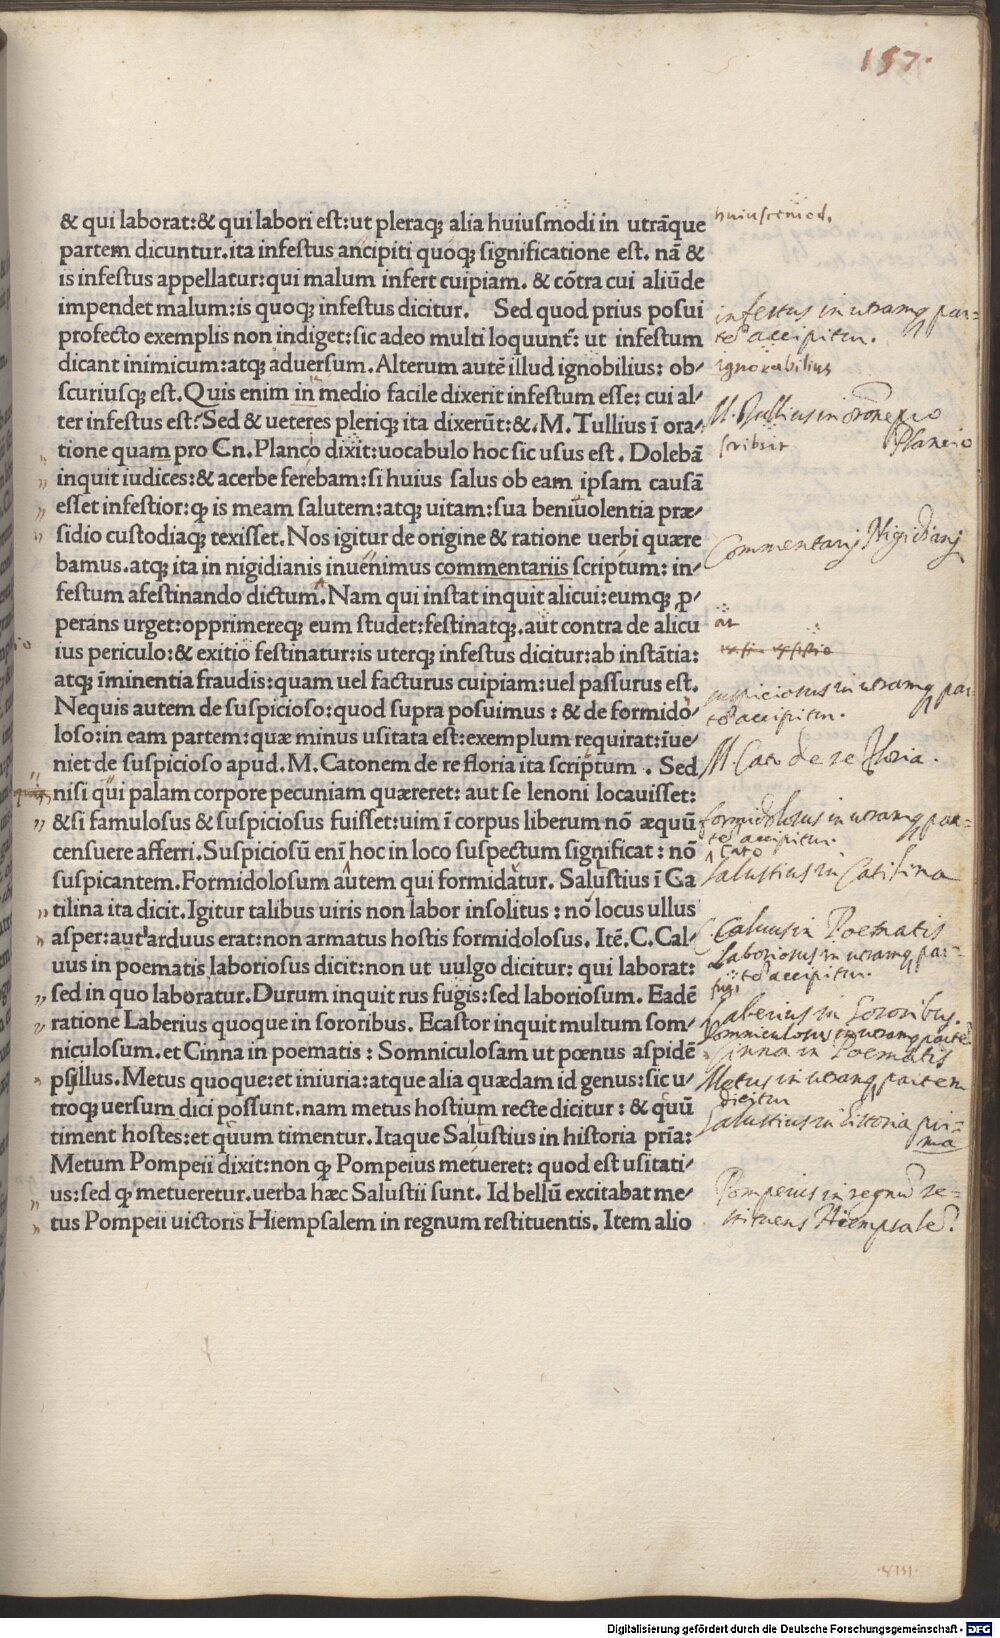 157.
& qui laborat:& qui labori est:ut pleraqꝫ alia huiusmodi in utrāque
partem dicuntur.ita infestus ancipiti quoqꝫ significatione est. nā &
is infestus appellatur:qui malum infert cuipiam. & cōtra cui aliūde
impendet malum:is quoqꝫ infestus dicitur. Sed quod prius posui
profecto exemplis non indiget:sic adeo multi loquunt᷑: ut infestum
dicant inimicum:atqꝫ aduersum. Alterum autē illud ignobilius: ob-
scuriusqꝫ est. Quis enim in medio facile dixerit infestum esse: cui al-
ter infestus est? Sed & ueteres pleriqꝫ ita dixerūt:&. M. Tullius ī ora-
tione quam pro Cn. Planco dixit:uocabulo hoc sic usus est. Dolebā
inquit iudices:& acerbe ferebam:si huius salus ob eam ipsam causā
esset infestior:qꝫ is meam salutem:atqꝫ uitam:sua beniuolentia præ-
sidio custodiaqꝫ texisset. Nos igitur de origine & ratione uerbi quære
bamus.atqꝫ ita in nigidianis inuenimus commentariis scriptum: in-
festum afestinando dictum. Nam qui instat inquit alicui:eumqꝫ ꝓ-
perans urget:opprimereqꝫ eum studet:festinatqꝫ.aut contra de alicu
ius periculo:& exitio festinatur:is uterqꝫ infestus dicitur:ab instātia:
atqꝫ īminentia fraudis:quam uel facturus cuipiam:uel passurus est.
Nequis autem de suspicioso:quod supra posuimus: & de formido-
loso:in eam partem:quæ minus usitata est:exemplum requirat:īue-
niet de suspicioso apud. M. Catonem de re floria ita scriptum. Sed
nisi qui palam corpore pecuniam quæreret: aut se lenoni locauisset:
& si famulosus & suspiciosus fuisset:uim ī corpus liberum nō æquū
censuere afferri. Suspiciosū enī hoc in loco suspectum significat: nō
suspicantem. Formidolosum autem qui formidatur. Salustius ī Ca
tilina ita dicit. Igitur talibus uiris non labor insolitus: no locus ullus
asper:aut arduus erat:non armatus hostis formidolosus. Itē. C. Cal-
uus in poematis laboriosus dicit:non ut uulgo dicitur: qui laborat:
sed in quo laboratur. Durum inquit rus fugis:sed laboriosum. Eadē
ratione Laberius quoque in sororibus. Ecastor inquit multum som-
niculosum.et Cinna in poematis: Somniculosam ut pœnus aspidē
psyllus. Metus quoque:et iniuria:atque alia quædam id genus:sic u-
troqꝫ uersum dici possunt.nam metus hostium recte dicitur: & quū
timent hostes:et quum timentur. Itaque Salustius in historia prīa:
Metum Pompeii dixit:non qꝫ Pompeius metueret: quod est usitati-
us:sed qꝫ metueretur.uerba hæc Salustii sunt. Id bellū excitabat me-
tus Pompeii uictoris Hiempsalem in regnum restituentis. Item alio
huiuscemod.
infestus in utramqꝫ par=
tē accipitur.
ignorabilius
M. Tullius in orōne pro
scribsit Plancio
Commentarij Nigidianj
at
suspiciosus in utramqꝫ par
tē accipitur.
M Cato de re Floria.
formidolosus in utramqꝫ par=
tē accipitur.
Cato
Salustius in Catilina
C. Caluus in Poematis
Laboriosus in utramqꝫ par=
tē accipitur.
fugi
Laberius in Sororibus.
Somniculosus in utramqꝫ parte
Cinna in Poematis
Metus in utramqꝫ partem
dicitur
Salustius in historia pri=
ma
Pompeius in regnū re=
stituens Hiempsalē.
XIII.
Digitalisierung gefördert durch die Deutsche Forschungsgemeinschaft - DFG